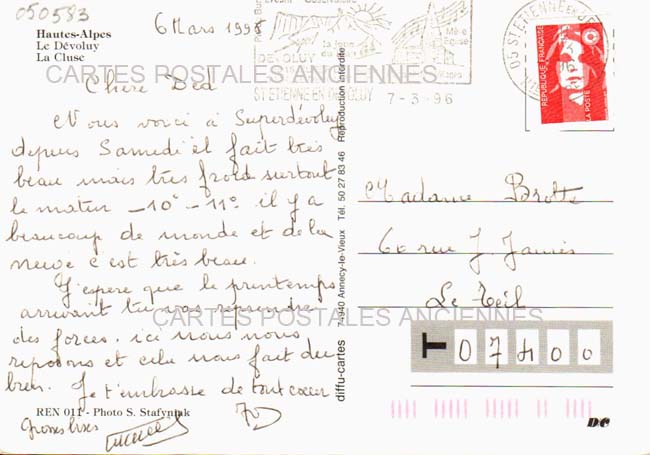 050583
Hautes-Alpes
Le Dévoluy
La Cluse
6 Mars 1996
Chère Ded
Nous voici à Superdévoluy
depuis Samedi il fait très
beau mais très froid surtout
le matin -10° -11° il y a
beaucoup de monde et de la
neige c'est très beau.
J'espère que le printemps
arrivant tu vas reprendre
des forces, ici nous nous
reposons et cela nous fait du
bien. Je t'embrasse de tout coeur
Grosses bises
REN 011 - Photo S. Stafyniak
CARTES POSTALES ANCIENNES
CARTES POSTALES ANCIENNES
DEVOLUY
ST ETIENNE EN DEVOLUY
7-3-96
05 ST ETIENNE EN
REPUBLIQUE FRANÇAISE
LA POSTE
diffu-cartes 74940 Annecy-le-Vieux Tél. 50 27 83 46 Reproduction interdite
Madame Brotte
60 rue J. Jaurès
Le Teil
T 07400
DC